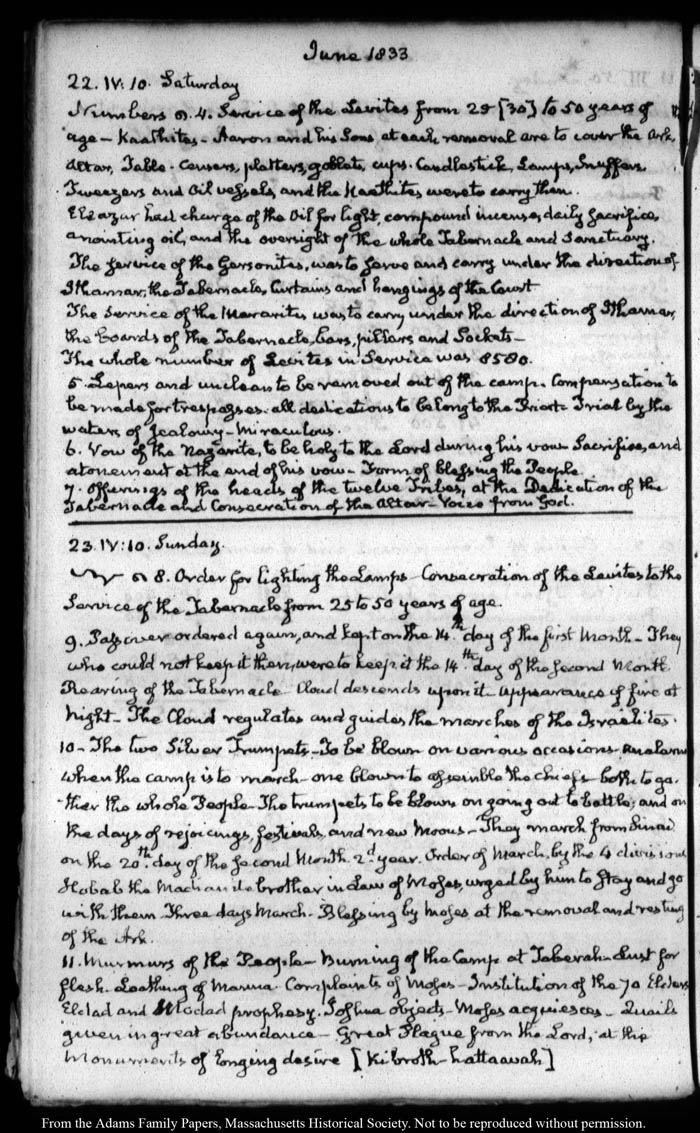 June 1833
22. IV: 10. Saturday
Numbers 4. Service of the Levites from 25 [30] to 50 years of
age — Kaathites — Aaron and his Sons at each removal are to cover the Ark
Altar, Table. Censers, platters, goblets, cups. Candlestick, Lamps, Snuffers
Tweezers and Oil vessels, and the Kaathites were to carry them.
Eleazar had charge of the Oil for light, compound incense, daily sacrifice,
anointing oil, and the oversight of the whole Tabernacle and Sanctuary.
The service of the Gersonites, was to serve and carry under the direction of
Ithamar, the Tabernacle, Curtains and hangings of the Court
The Service of the Merarites was to carry under the direction of Ithamar,
the boards of the Tabernacle, bars, pillars, and Sockets —
The whole number of Levites in Service was 8580.
5. Lepers and unclean to be removed out of the camp. Compensation to
be made for trespasses. all dedications to belong to the Priest — Trial by the
waters of Jealousy — Miraculous.
6. Vow of the Nazarite, to be holy to the Lord during his vow — Sacrifice, and
atonement at the end of his vow — Form of blessing the People.
7. Offerings of the heads of the twelve Tribes, at the Dedication of the
Tabernacle and Consecration of the Altar — Voice from God.
23. IV: 10. Sunday.
8. Order for lighting the Lamps — Consecration of the Levites to the
Service of the Tabernacle from 25 to 50 years of age.
9. Passover ordered again, and kept on the 14th day of the first Month — They
who could not keep it then, were to keep it the 14th day of the second Month.
Rearing of the Tabernacle — Cloud descends upon it — appearance of fire at
Night — The Cloud regulates and guides the marches of the Israelites.
10 — The two Silver Trumpets — To be blown on various occasions — an alarm
when the camp is to march — one blown to assemble the chiefs — both to ga-
ther the whole People — The trumpets to be blown on going out to battle; and on
the days of rejoicings, festivals, and new Moons — They march from Sinai
on the 20th day of the second Month 2d year. Order of March, by the 4 divisions
Hobab the brother in Law of Moses, urged by him to stay and go
with them. Three days March — Blessing by Moses at the removal and resting
of the Ark.
11. Murmurs of the People — Burning of the Camp at Taberah — Lust for
flesh. Loathing of Manna. Complaints of Moses — Institution of the 70 Elders
Eldad and Modad prophesy. Joshua objects — Moses acquiesces — Quails
given in great abundance — Great Plague from the Lord, at the
Monuments of longing desire [Kibroth-hattaavah]
From the Adams Family Papers, Massachusetts Historical Society. Not to be reproduced without permission.